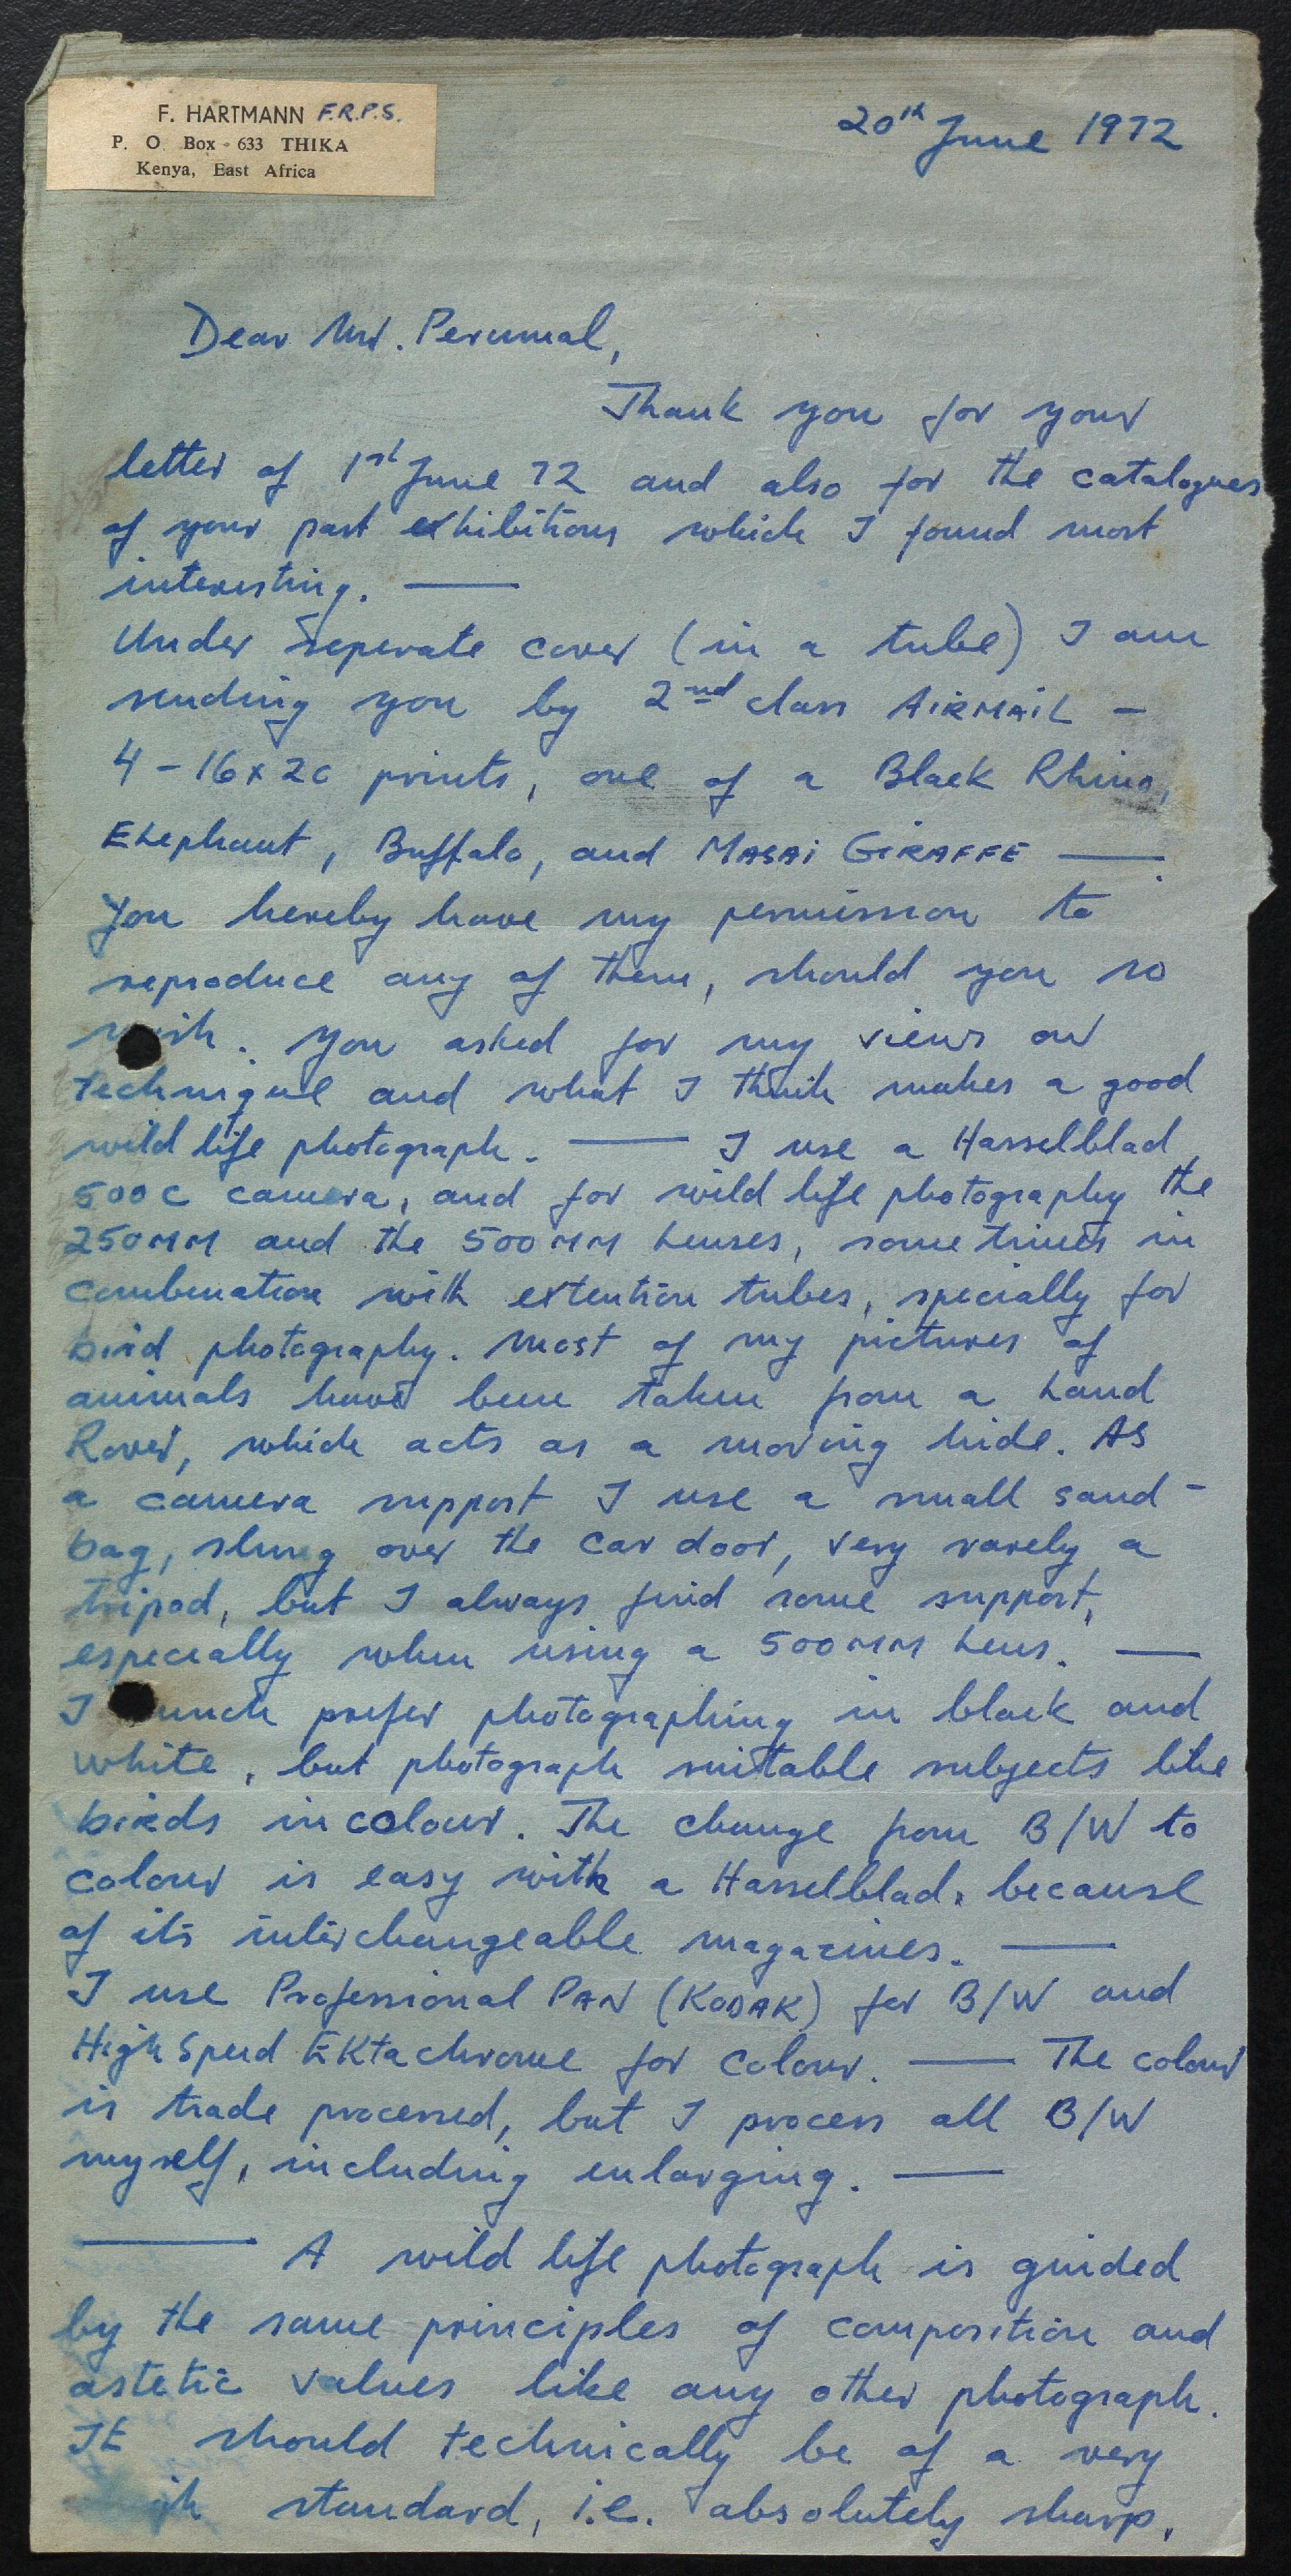 F. HARTMANN F.R.P.S.
P. O. Box - 633 THIKA
Kenya, East Africa
20th June 1972
Dear Mr. Perumal,
Thank you for your
letter of 1st June 72 and also for the catalogues
of your past exhibitions which I found most
interesting. —
Under seperate cover (in a tube) I am
sending you by 2nd class AIRMAIL –
4 – 16x20 prints, one of a Black Rhino,
Elephant, Buffalo, and MASAI GIRAFFE —.
You hereby have my permission to
reproduce any of them, should you so
wish. You asked for my views on
technique and what I think makes a good
wild life photograph. — I use a Hasselblad
500C camera, and for wild life photography the
250MM and the 500MM Lenses, some times in
combination with extention tubes, specially for
bird photography. Most of my pictures of
animals have been taken from a Land
Rover, which acts as a moving hide. As
a camera support I use a small sand-
bag, slung over the car door, very rarely a
tripod, but I always find some support,
especially when using a 500MM Lens. —
I much prefer photographing in black and
white, but photograph suitable subjects like
birds in colour. The change from B/W to
colour is easy with a Hasselblad, because
of its interchangeable magazines. —
I use Professional PAN (KODAK) for B/W and
High Speed EKtachrome for colour. — The colour
is trade processed, but I process all B/W
myself, including enlarging. —
— A wild life photograph is guided
by the same principles of composition and
astetic values like any other photograph.
It should technically be of a very
high standard, i.e. absolutely sharp,